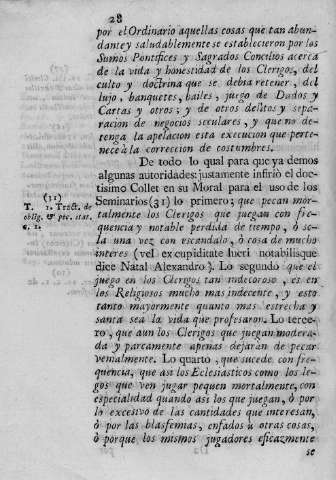 28
por el Ordinario aquellas cosas que tan abun-
dante y saludablemente se establecieron por los
Sumos Pontifices y Sagrados Concilios acerca
de la vida y honestidad de los Clerigos, del
culto y doctrina que se debia retener, del
lujo, banquetes, bailes, juego de Dados y
Cartas y otros; y de otros delitos y sepa-
racion de negocios seculares, y que no de-
tenga la apelacion esta execucion que perte-
nece à la correccion de costumbres.
De todo lo qual para que ya demos
algunas autoridades: justamente infirió el doc-
tisimo Collet en su Moral para el uso de los
Seminarios (31) lo primero; que pecan mor-
talmente los Clerigos que juegan con fre-
quencia y notable perdida de tiempo, ò so-
la una vez con escandalo, ò cosa de mucho
interes (vel ex cupiditate lucri notabilisque
dice Natal Alexandro). Lo segundo que el
juego en los Clerigos tan indecoroso, es en
los Religiosos mucho mas indecente, y esto
tanto mayormente quanto mas estrecha y
santa sea la vida que profesaron. Lo terce-
ro, que aun los Clerigos que juegan modera-
da y parcamente apenas dejarán de pecar
venialmente. Lo quarto, que sucede con fre-
quencia, que asi los Eclesiasticos como los le-
gos que ven jugar pequen mortalmente, con
especialidad quando asi los que juegan, ò por
lo excesivo de las cantidades que interesan,
ò por las blasfemias, enfados ù otras cosas,
ò porque los mismos jugadores eficazmente
se
(31)
T. 1. Tract. de
oblig. & pec. stat.
c. 1.